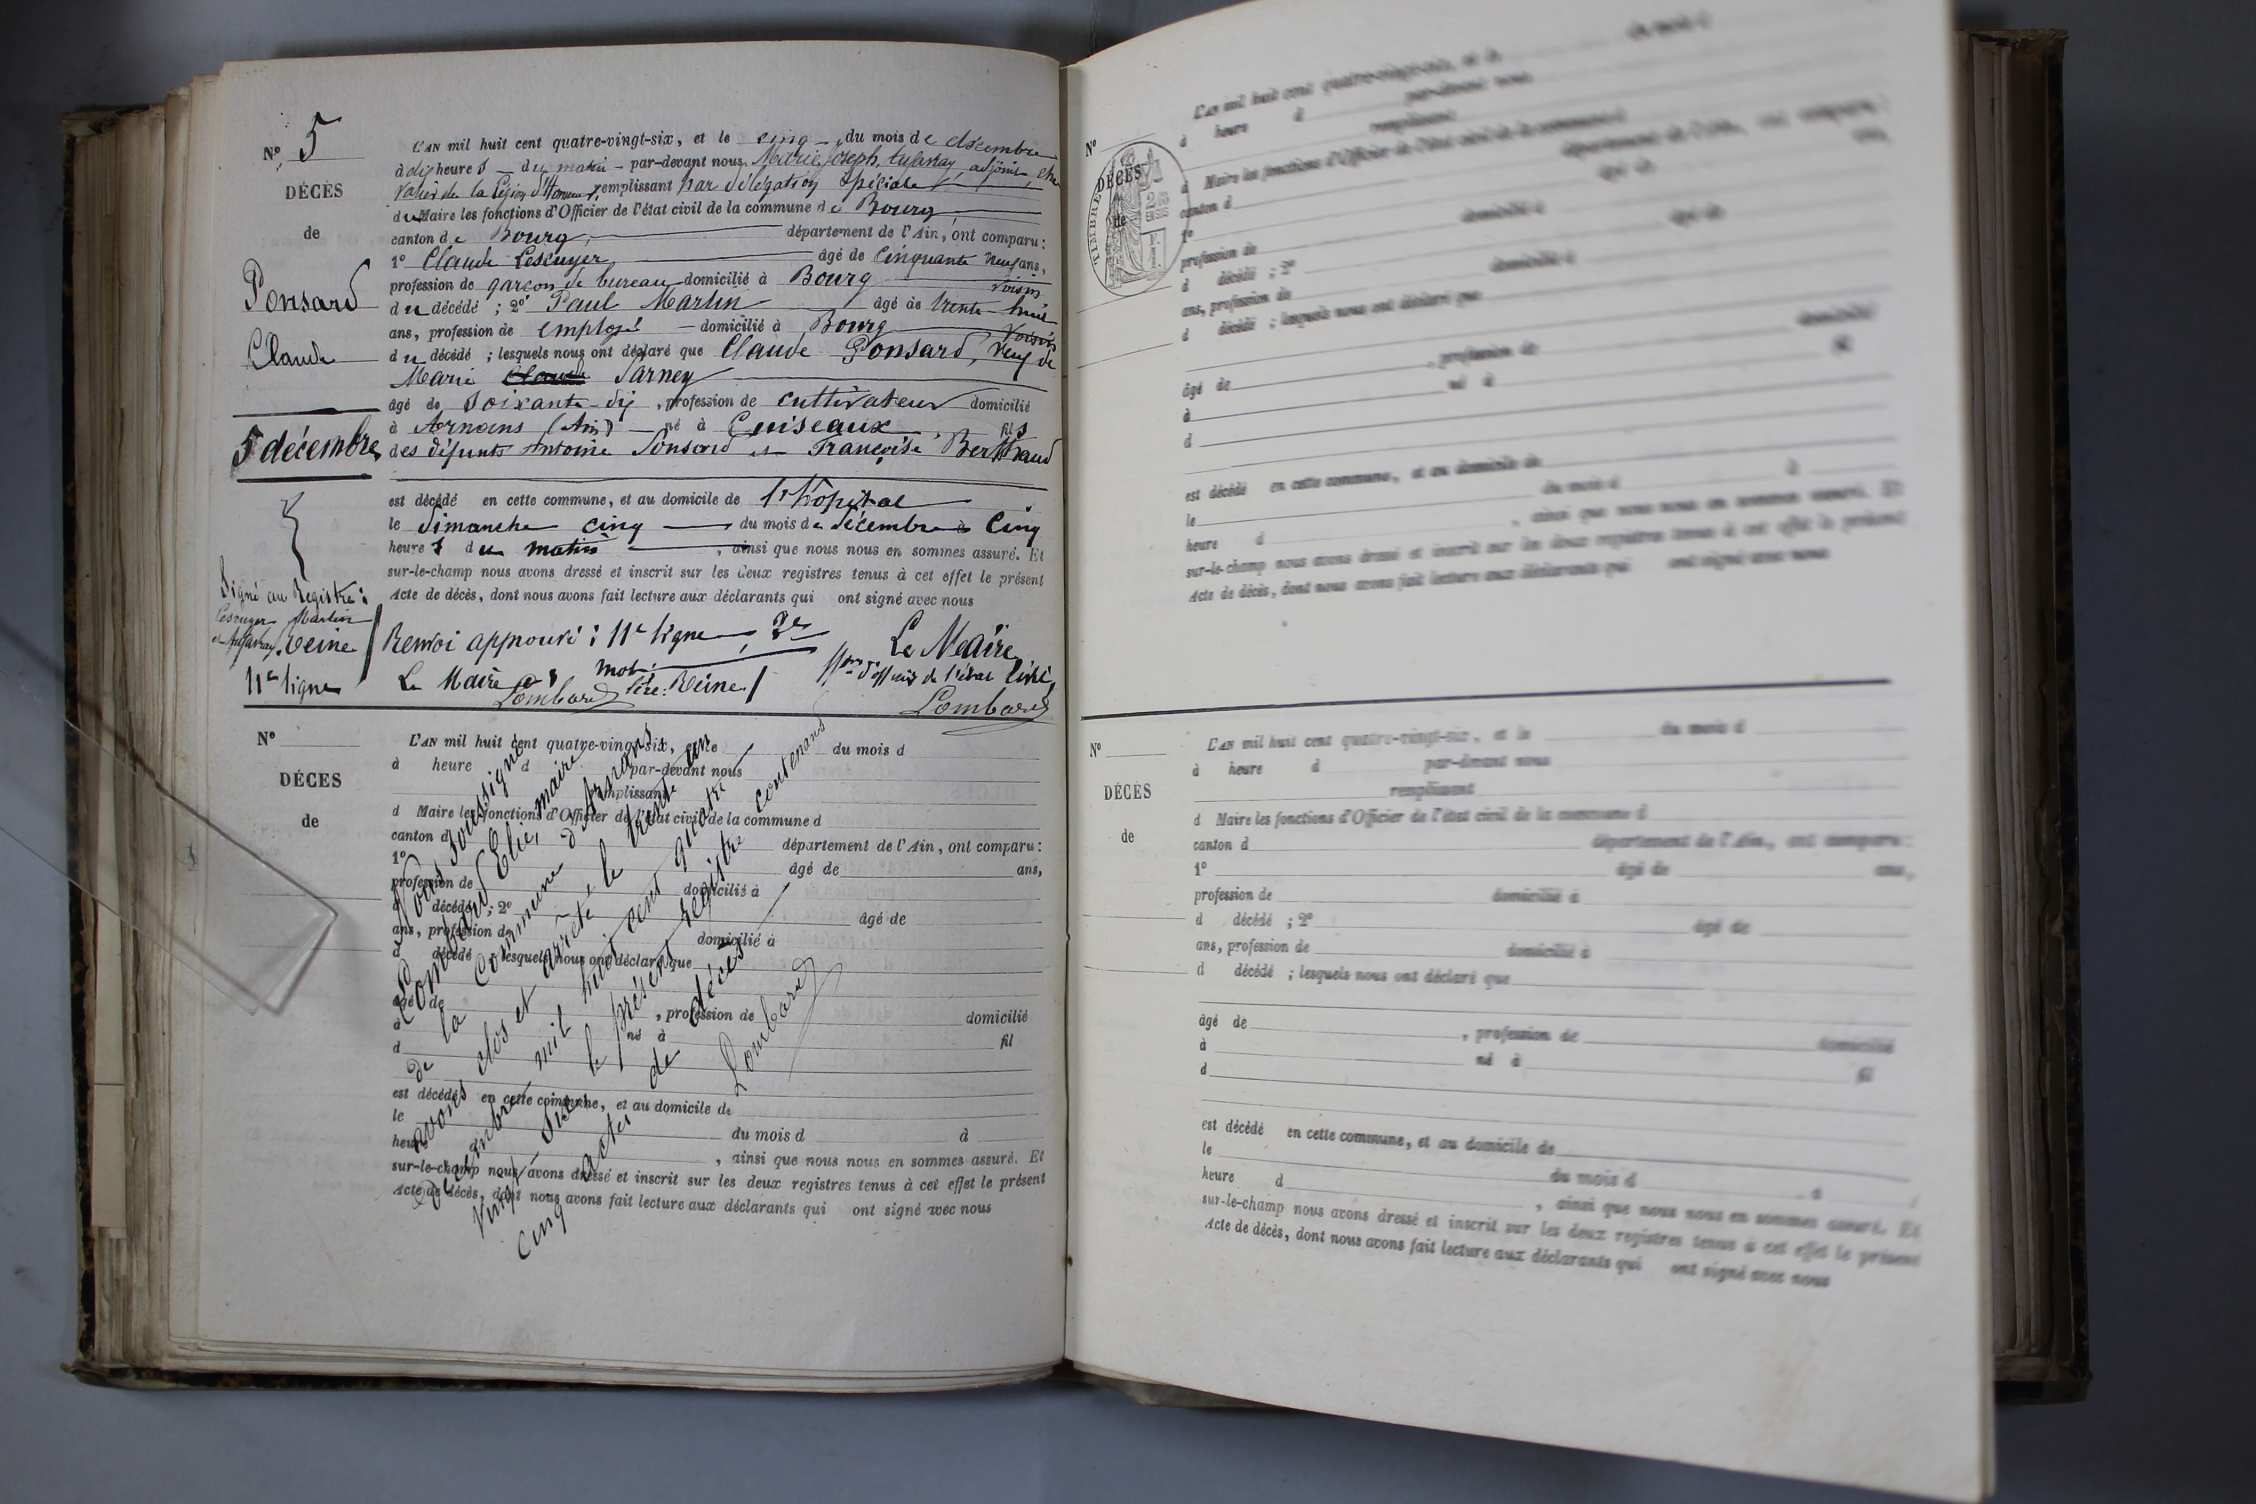 N° 5
DÉCÈS
de
Ponsard
Claude
5 décembre
Signé au Registre :
Lescuyer Martin
et Reine
11e ligne
L'AN mil huit cent quatre-vingt-six, et le cinq du mois de décembre
à dix heures du matin par-devant nous, Marie Joseph adjoint, che
valier de la Légion d'Honneur, remplissant par délégation spéciale
du Maire les fonctions d'Officier de l'état civil de la commune de Bourg,
canton de Bourg, département de l'Ain, ont comparu :
1° Claude Lescuyer, âgé de Cinquante neuf ans,
profession de garçon de bureau domicilié à Bourg voisin
du décédé ; 2° Paul Martin âgé de trente-huit
ans, profession de employé domicilié à Bourg voisin
du décédé ; lesquels nous ont déclaré que Claude Ponsard, veuf de
Marie Claude Sarney
âgé de soixante-dix, profession de cultivateur domicilié
à Arnans (Ain) né à Cuiseaux fils
des défunts Antoine Ponsard et Françoise Berthaud
est décédé en cette commune, et au domicile de l'hôpital
le dimanche cinq du mois de décembre à Cinq
heures du matin, ainsi que nous nous en sommes assuré. Et
sur-le-champ nous avons dressé et inscrit sur les deux registres tenus à cet effet le présent
Acte de décès, dont nous avons fait lecture aux déclarants qui ont signé avec nous
Renvoi approuvé : 11e ligne, 2e
mot.
Le Maire
Lombard
Reine
Le Maire
d'officier de l'état civil,
Lombard
N°
DÉCÈS
de
L'AN mil huit cent quatre-vingt-six, et le du mois d
à heure d par-devant nous
remplissant
d Maire les fonctions d'Officier de l'état civil de la commune d
canton d département de l'Ain, ont comparu :
1° âgé de ans,
profession de domicilié à
d décédé ; 2° âgé de
ans, profession de domicilié à
d décédé ; lesquels nous ont déclaré que
âgé de , profession de domicilié
à né à fil
d
est décédé en cette commune, et au domicile de
le du mois d à
heure , ainsi que nous nous en sommes assuré. Et
sur-le-champ nous avons dressé et inscrit sur les deux registres tenus à cet effet le présent
Acte de décès, dont nous avons fait lecture aux déclarants qui ont signé avec nous
Nous soussigné
Lombard Elie, maire
de la commune d'Arnans
avons clos et arrêté le trente un
décembre mil huit cent quatre
vingt six le présent registre contenant
cinq actes de décès
Lombard
N°
DÉCÈS
de
TIMBRE
L'AN mil huit cent quatre-vingt-six, et le du mois d
à heure d par-devant nous
remplissant
d Maire les fonctions d'Officier de l'état civil de la commune d
canton d département de l'Ain, ont comparu :
1° âgé de ans,
profession de domicilié à
d décédé ; 2° âgé de
ans, profession de domicilié à
d décédé ; lesquels nous ont déclaré que
âgé de , profession de domicilié
à né à fil
d
est décédé en cette commune, et au domicile de
le du mois d à
heure d , ainsi que nous nous en sommes assuré. Et
sur-le-champ nous avons dressé et inscrit sur les deux registres tenus à cet effet le présent
Acte de décès, dont nous avons fait lecture aux déclarants qui ont signé avec nous
N°
DÉCÈS
de
L'AN mil huit cent quatre-vingt-six, et le du mois d
à heure d par-devant nous
remplissant
d Maire les fonctions d'Officier de l'état civil de la commune d
canton d département de l'Ain, ont comparu :
1° âgé de ans,
profession de domicilié à
d décédé ; 2° âgé de
ans, profession de domicilié à
d décédé ; lesquels nous ont déclaré que
âgé de , profession de domicilié
à né à fil
d
est décédé en cette commune, et au domicile de
le du mois d à
heure d , ainsi que nous nous en sommes assuré. Et
sur-le-champ nous avons dressé et inscrit sur les deux registres tenus à cet effet le présent
Acte de décès, dont nous avons fait lecture aux déclarants qui ont signé avec nous